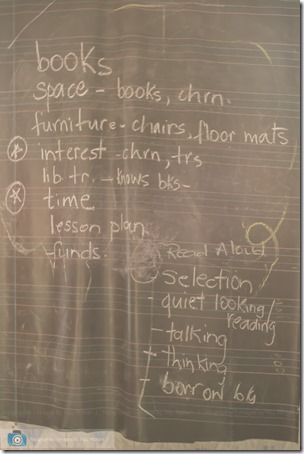 books
space - books, chrn.
furniture - chairs, floor mats
interest - chrn, trs
lib tr. - knows bks -
time
lesson plan
funds.
Read Aloud
selection
- quiet looking/
reading
- talking
- thinking
- borrow bks